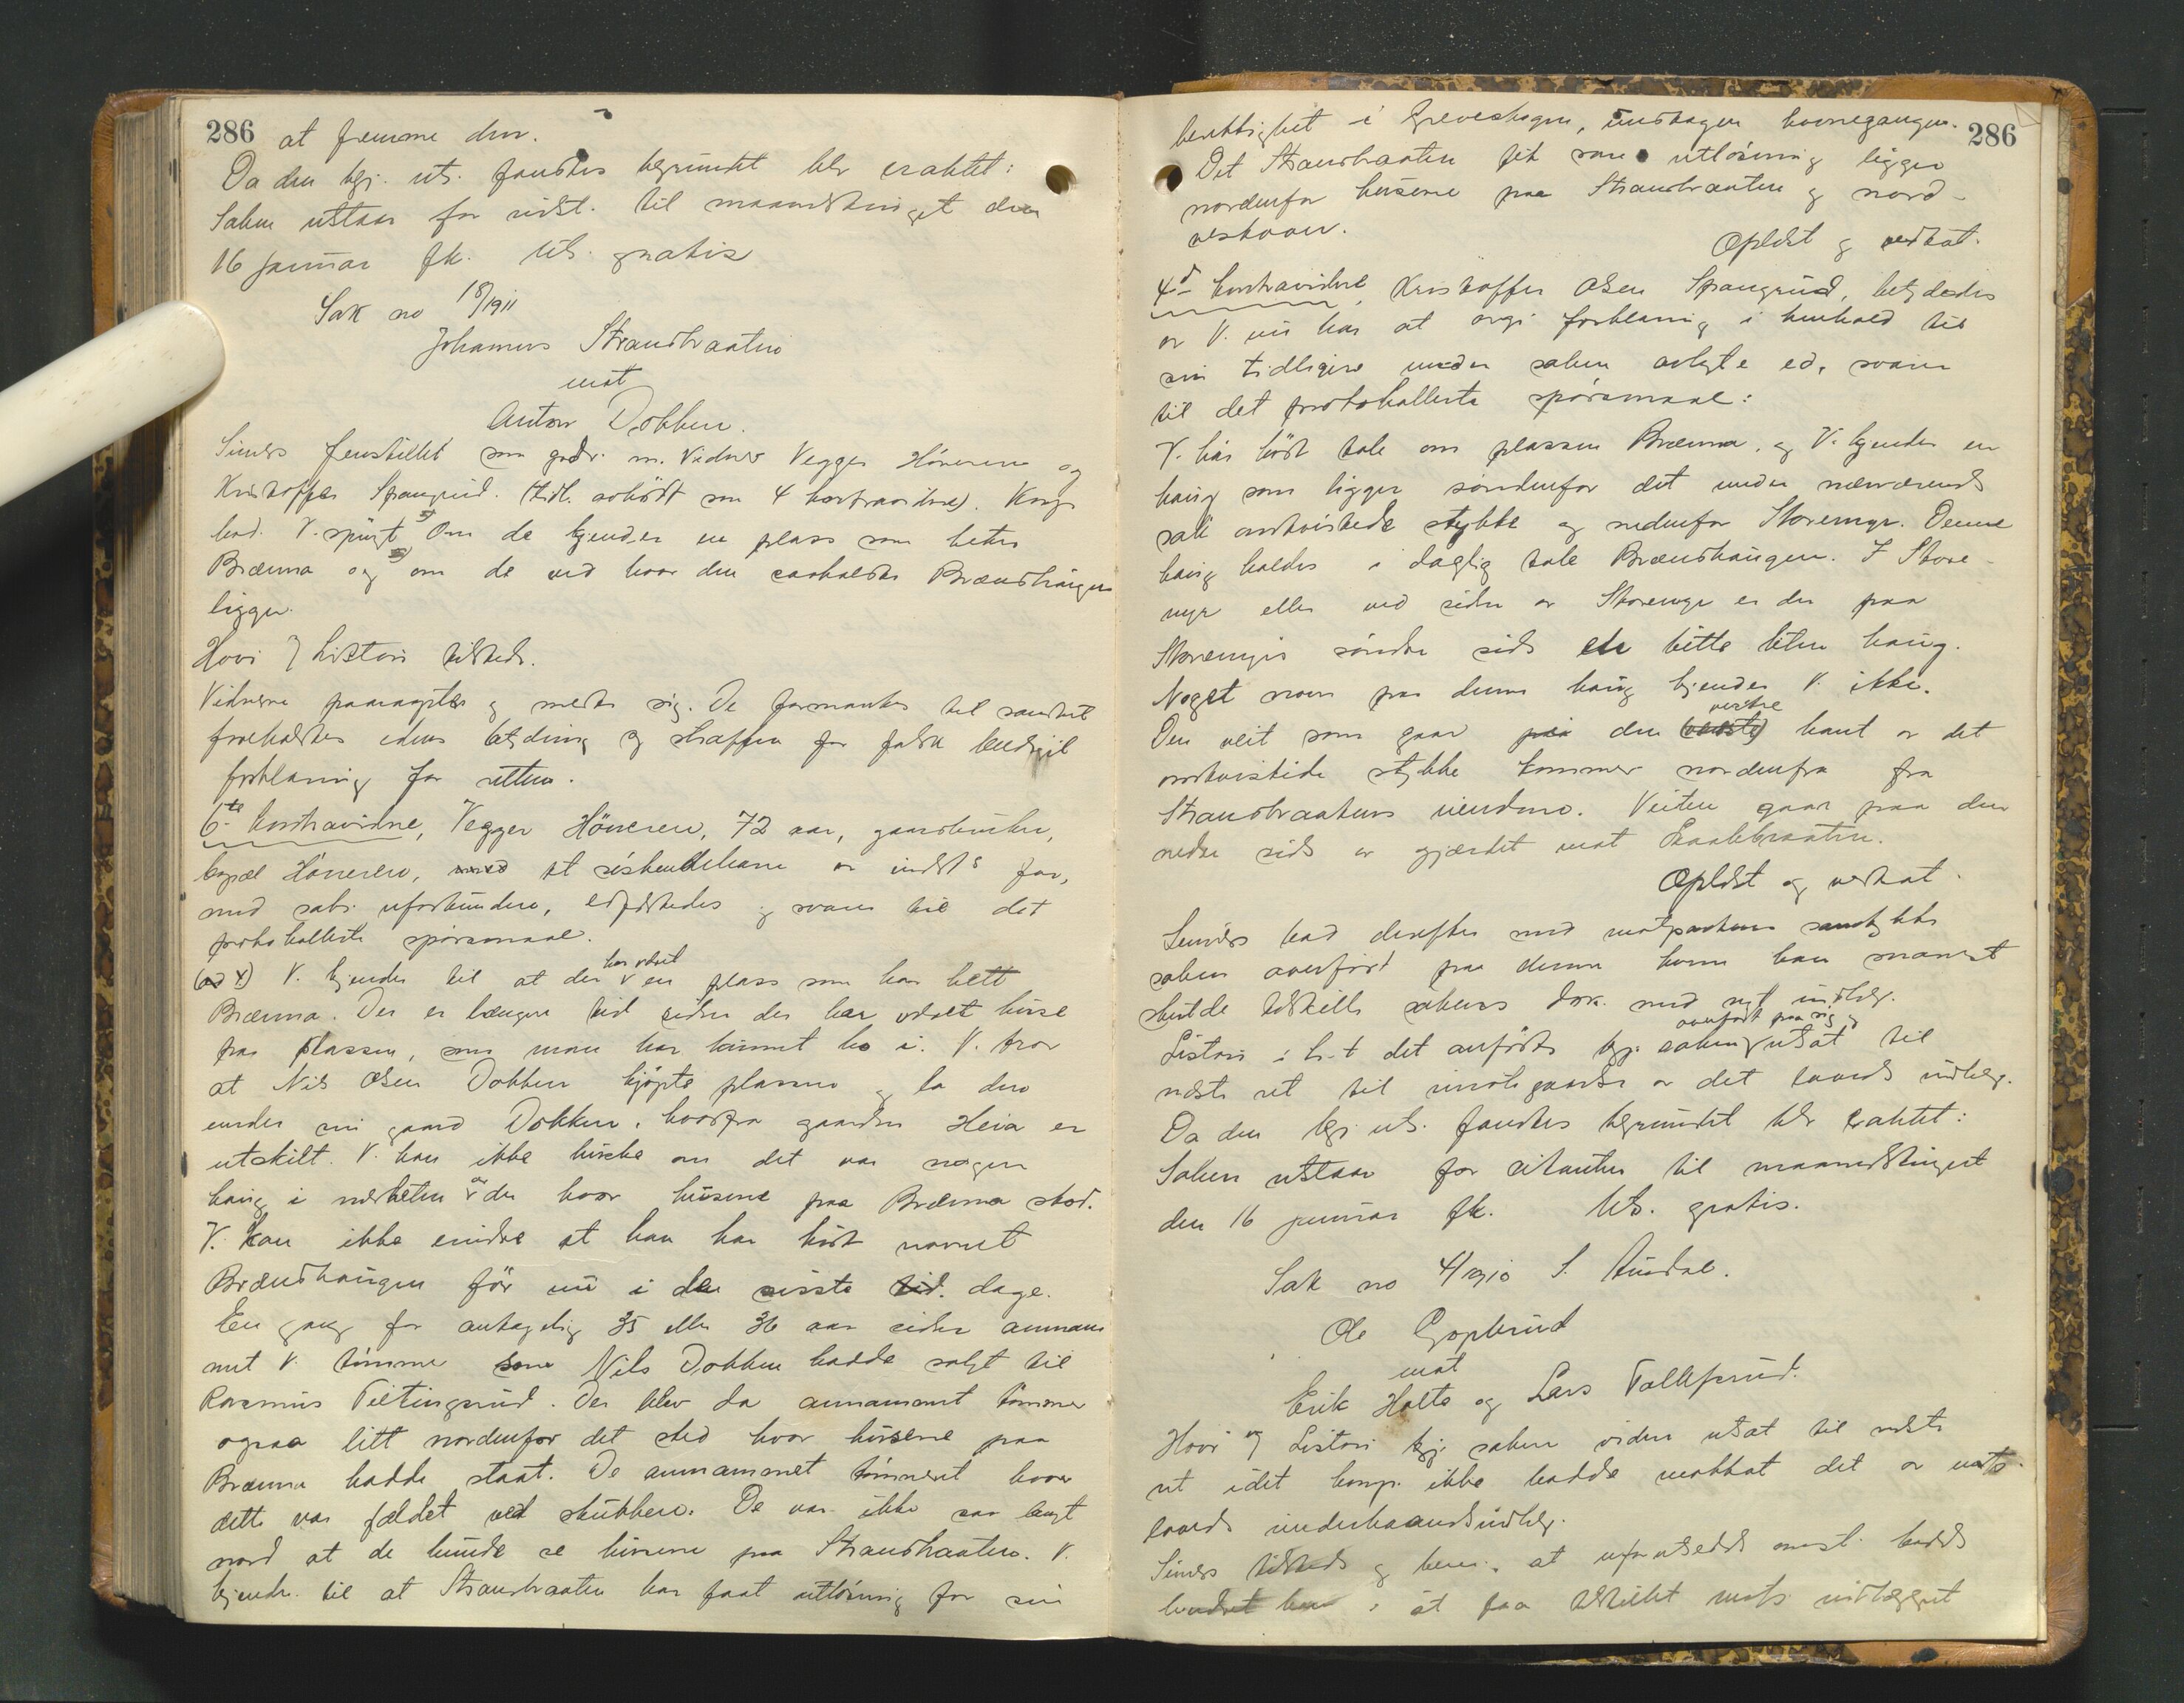 286 at fremme den.
Da den bgj. uts. fandtes begrundet blev eraktet:
Saken utstaar for vidst. til maanedstinget den
16 januar fk. Uts. gratis
Sak no 18/1911
Johannes Strandbraaten
mot
Anton Dokken.
Siness fremstillet som godv. m. Vidner Vegger Höneren og
Kristoffer Spangrud. (tidl. avhört som 4 kontravidne). Kongs
bad V. spurgt 4) Om de kjender en plass som hetes
Brænna og 5) om de ved hvor den saakaldte Brændhaugen
ligger.
Hovi f Listou tilstede.
Vidnerne paaraaptes og meldte sig. De formantes til sandhet
foreholdtes edens betydning og straffen for falsk beedigit
forklaring for retten.
6te Kontravidne, Vegger Höneren, 72 aar, gaardbruker,
bopæl Höneren, et söskendebarn av indsts far,
med sabs uforbunden, edfæstedes og svarer til det
protokollerte spörsmaal.
(ad 4) V. kjender til at der har været en plass som har hett
Brænna. Der er længere tid siden der har været huse
paa plassen, som man har kunnet bo i. V. tror
at Nils Olsen Dokken kjöpte plassen og la den
under sin gaard Dokken, hvorfra gaarden Heia er
utskilt. V. kan ikke huske om det var nogen
haug i nærheten av der hvor husene paa Brænna stod.
V. kan ikke erindre at han har hört navnet
Brændhaugen för nu i de sisste tid. dage.
En gang for antagelig 35 eller 36 aar siden annam
met V. tömmer som Nils Dokken hadde solgt til
Rasmus Teitingsrud. Der blev da annammet tömmer
ogsaa litt nordenfor det sted hvor husene paa
Brænna hadde staat. De annammet tömmeret hvor
dette var fældet ved stubben. De var ikke saa langt
nord at de kunde se husene paa Strandbraaten. V.
kjender til at Strandbraaten har faat utlösning for sin
berettighet i Greveskogen, undtagen havnegangen. 286
Det Strandbraaten fik som utlösning ligger
nordenfor husene paa Strandbraaten og nord-
vestover.
Oplæst og vedtat.
4d Kontravidne, Kristoffer Olsen Spangrud, betydedes
av V. nu har at avgi forklaring i henhold til
sin tidligere under saken avlagte ed, svarer
til det protokollerte spörsmaal:
V. har hört tale om plassen Brænna, og V. kjender en
haug som ligger söndenfor det under nærværende
sak omtvistede stykke og nedenfor Storemyr. Denne
haug kaldes i daglig tale Brændhaugen. I Store-
myr eller ved siden av Storemyr er der paa
Storemyrs söndre side en bitte liten haug.
Noget navn paa denne haug kjender V. ikke.
Den veit som gaar paa den (vestre) vestre kant av det
omtvistede stykke kommer nordenfra fra
Strandbraatens eiendom. Veiten gaar paa den
nedre side av gjærdet mot Braatebraaten.
Oplæst og vedtat.
Siness bad derefter med motpartens samtykke
saken overfört paa denne hvem han snarest
skulde tilstille sakens dok. med nyt indlæg.
Listou i h.t det anförte bgj. saken overfört paa sig og utsat til
næste ret til imötegaaelse av det lovede indlæg.
Da den bgj. uts. fandtes begrundet blev eraktet:
Saken utstaar for citanten til maanedstinget
den 16 januar fk. Uts. gratis.
Sak no 4/1910 S. Aurdal.
Ole Goplerud
mot
Erik Holte og Lars Tollefsrud.
Hovi f Listou bgj. saken videre utsat til næste
ret idet komp. ikke hadde mottat det av motp.
lovede underhaandsindlæg.
Siness tilstede og bem. at uforutsedte omst. hadde
hindret ham i at faa tilstillet motp. indlægget